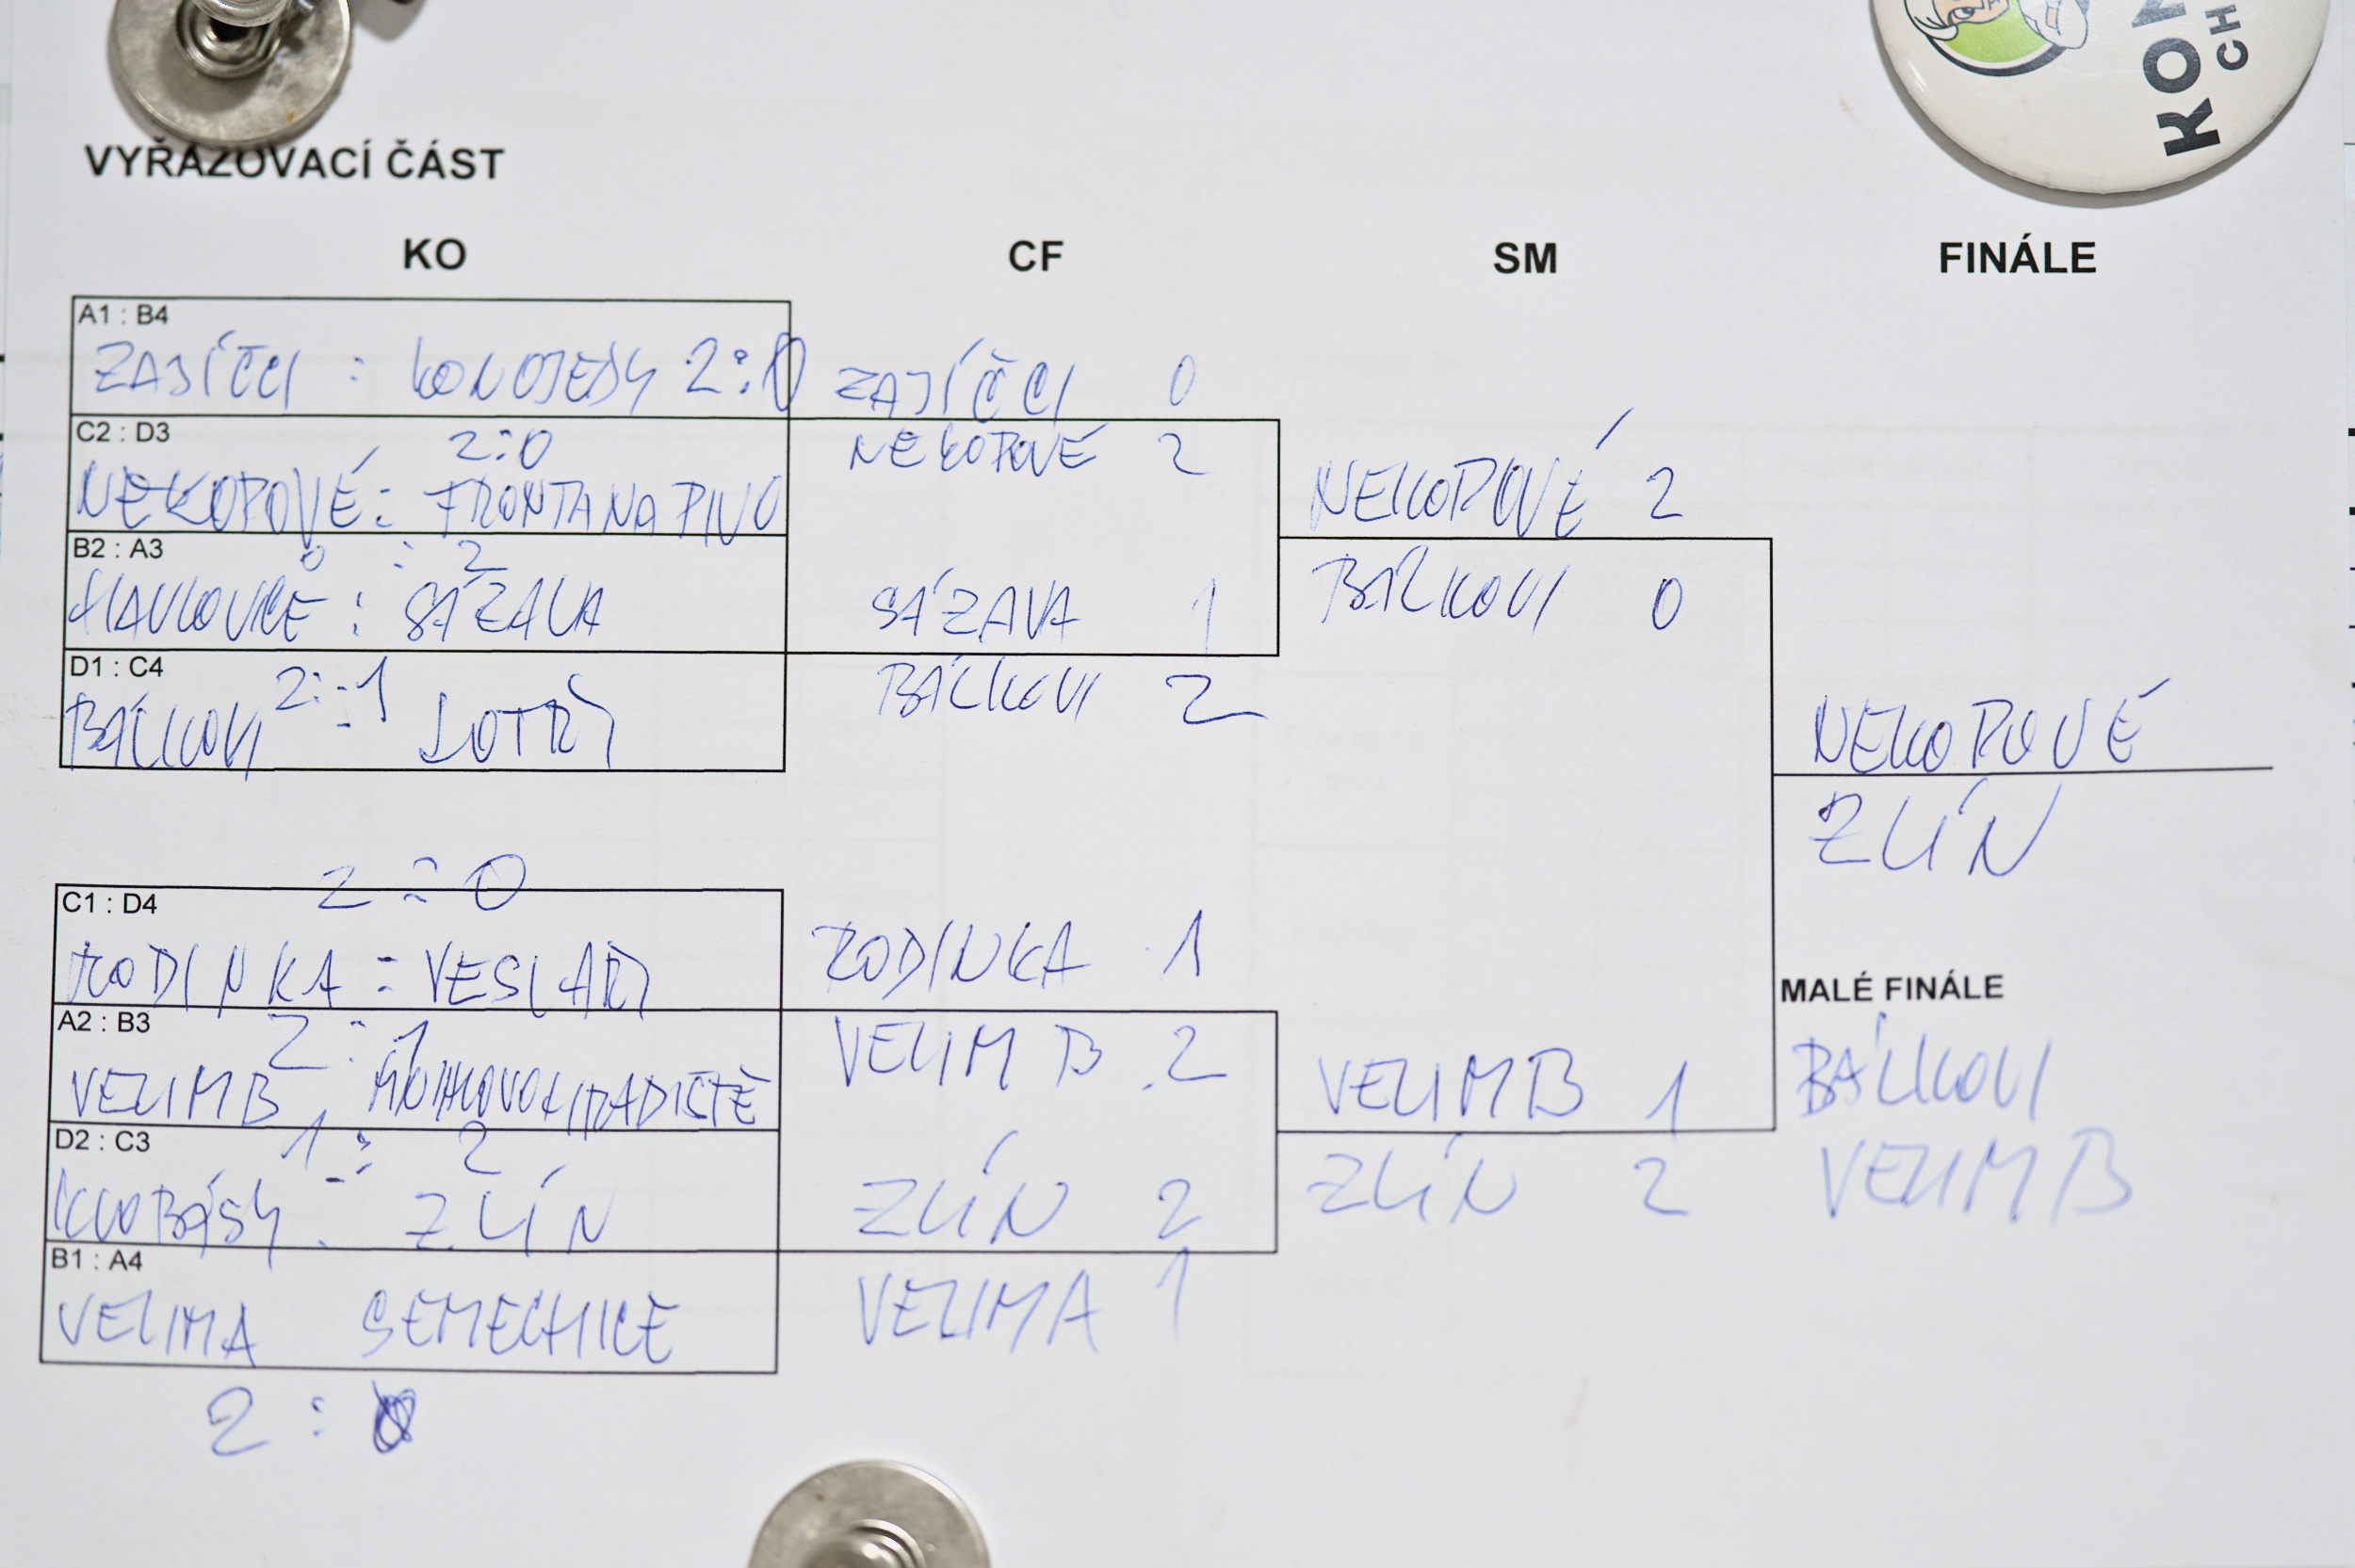 KON
CH
VYŘAZOVACÍ ČÁST
KO CF SM FINÁLE
A1 : B4
ZAJÍČCI : KONOJEDY 2:0
ZAJÍČCI 0
C2 : D3
2:0
NEKOPOVÉ : FRONTA NA PIVO
NEKOPOVÉ 2
B2 : A3
0 : 2
HAVLOVICE : SÁZAVA
SÁZAVA 1
D1 : C4
2:1
BÁČKOVI : LOTŘI
2
NEKOPOVÉ 2
0
NEKOPOVÉ
ZLÍN
2 : 0
C1 : D4
RODINKA : VESLAŘI
RODINKA 1
A2 : B3
2 : 1
VELIM B : MNICHOVO HRADIŠTĚ
VELIM B 2
D2 : C3
1 : 2
KLOBÁSY : ZLÍN
ZLÍN 2
B1 : A4
VELIM A SEMECHNICE
VELIM A 1
2 : 0
VELIM B 1
ZLÍN 2
MALÉ FINÁLE
VELIM B